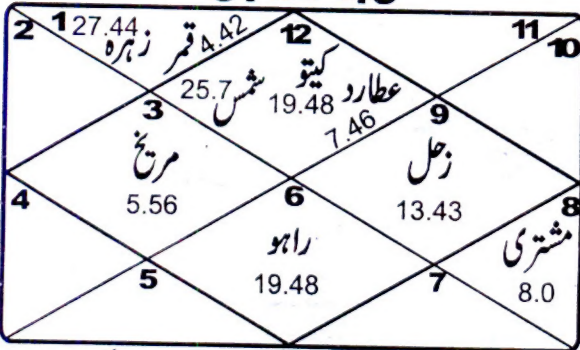 2 1 27.44 زہرہ قمر 4.42 12 11 10
3 25.7 شمس کیتو 19.48 عطارد 7.46 9
مریخ 5.56 زحل 13.43
4 6 8
راہو 19.48 مشتری 8.0
5 7